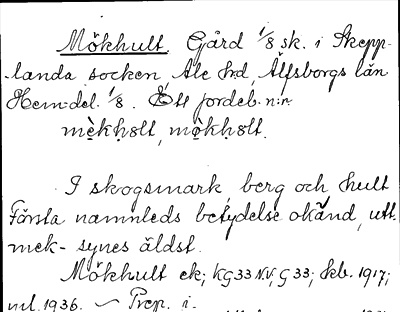 Mökhult Gård 1/8 sk. i Skepp-
landa socken, Ale hd, Älfsborgs län
Hemdel. 1/8. Ett jordeb.n:r.
mèkhult, mökhult.
I skogsmark, berg och hult
Första namnleds betydelse okänd, utt.
mek- synes äldst.
Mökhult ek; KG33 N.V., G33; Skb. 1917;
ml. 1936. — Prep. i.